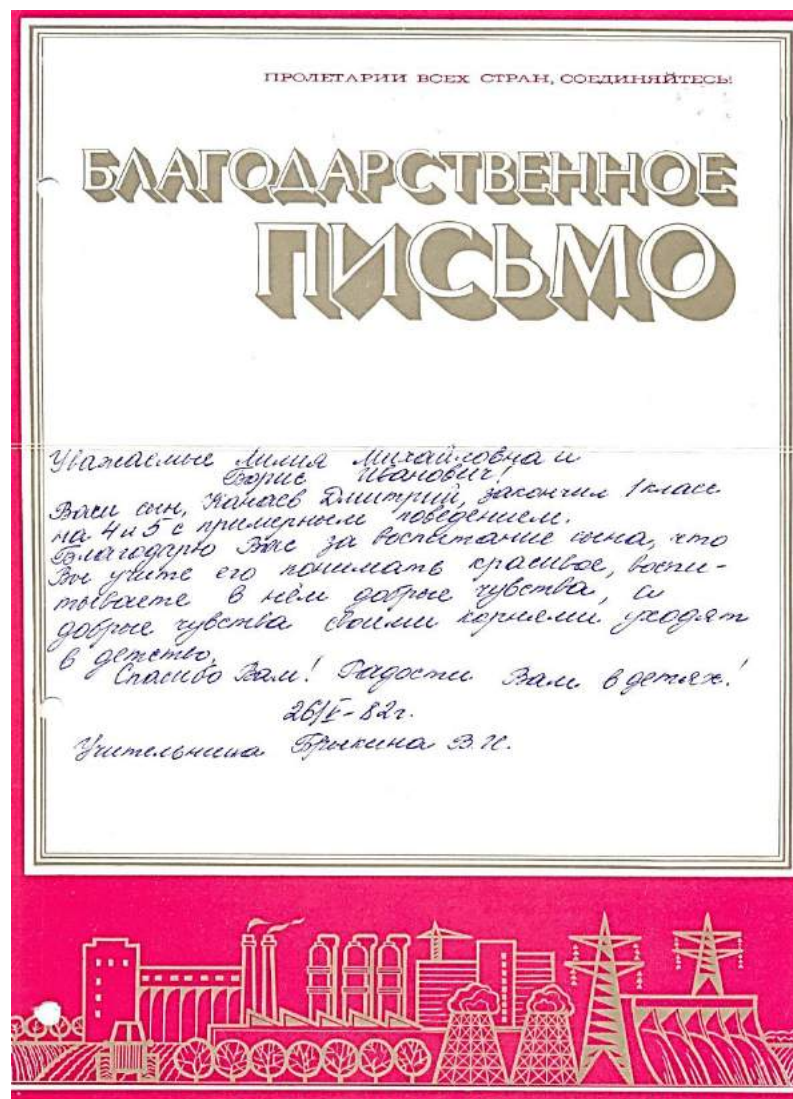 ПРОЛЕТАРИИ ВСЕХ СТРАН, СОЕДИНЯЙТЕСЬ!
БЛАГОДАРСТВЕННОЕ
ПИСЬМО
Уважаемые Лилия Михайловна и
Борис Иванович!
Ваш сын, Канаев Дмитрий, закончил 1 класс
на 4 и 5 с примерным поведением.
Благодарю Вас за воспитание сына, что
Вы учите его понимать красивое, воспи-
тываете в нём добрые чувства, а
добрые чувства своими корнями уходят
в детство.
Спасибо Вам! Радости Вам в детях!
26/V-82г.
Учительница Брыкина В.Н.